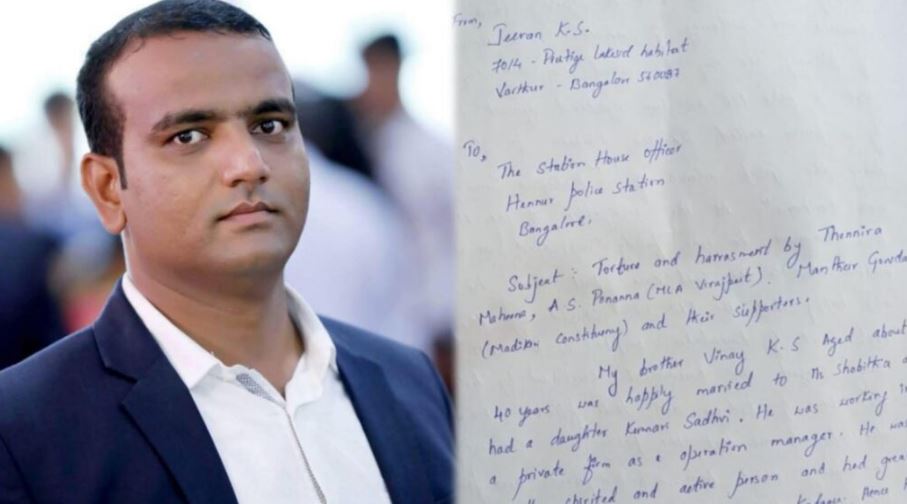 From,
Jeevan K.S.
70/4 - Prestige lakesd habitat
Varthur - Bangalore 560087
To,
The Station House officer
Hennur police station
Bangalore.
Subject : Torture and harrasment by Thennira
Maheena, A.S. Ponanna (MLA Virajpet). Manther Gowda
(Madikeri Constituency) and their supporters.
My brother Vinay K.S Aged about
40 years was happly married to Ms Shobitha
had a daughter Kumari Sadhvi. He was working in
a private firm as a operation manager. He was
and active person and had
Hence